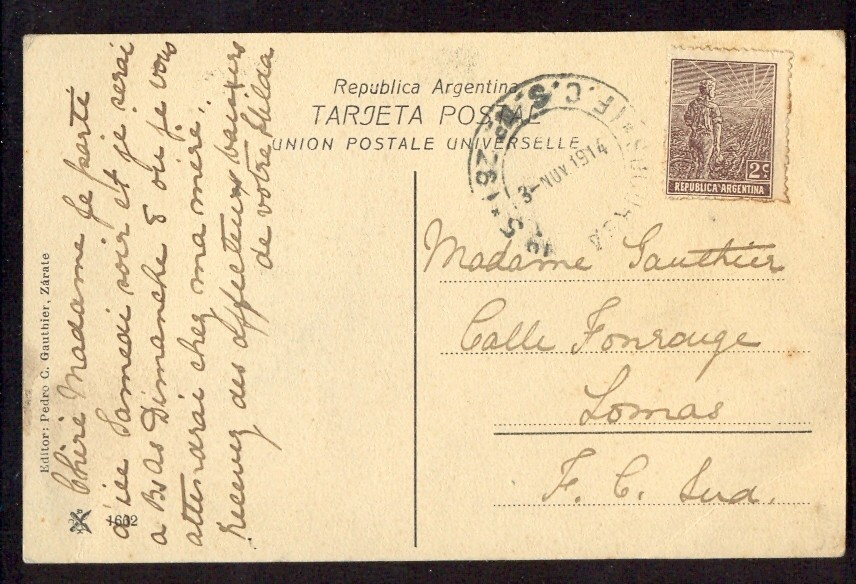 Republica Argentina
TARJETA POSTAL
UNION POSTALE UNIVERSELLE
3-NOV 1914
F.C.S.
2c
REPUBLICA ARGENTINA
Chère Madame je parté
d'ici Samedi soir et je serai
a Bs As Dimanche 8 ou je vous
attendrai chez ma mère.
Recevez des affecteux baisers
de votre Hilda
Madame Gauthier
Calle Fonrouge
Lomas
F. C. Sud.
Editor: Pedro C. Gauthier, Zárate
1662